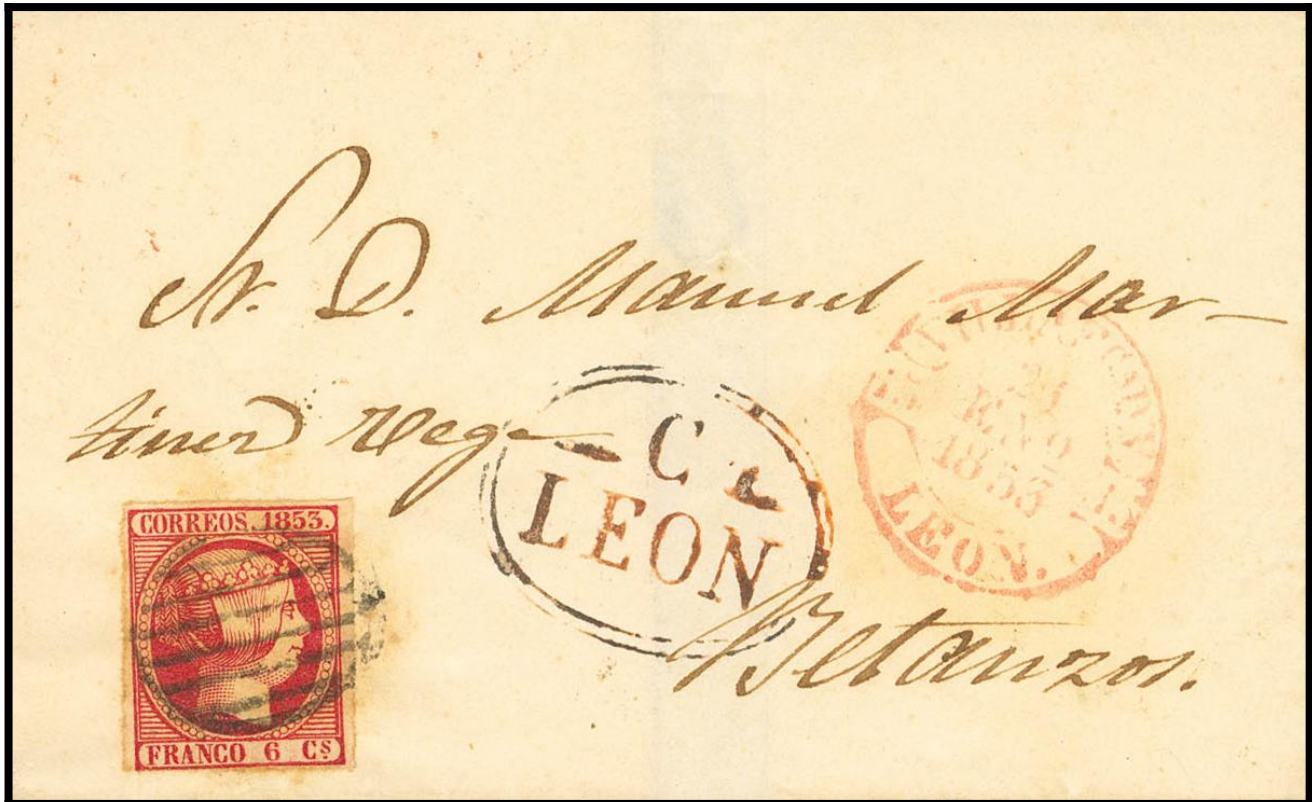 Sr. D. Manuel Mar-
tinez Vega
C
LEON
24
ENO
1853
LEON.
Betanzos.
CORREOS. 1853.
FRANCO 6 Cs